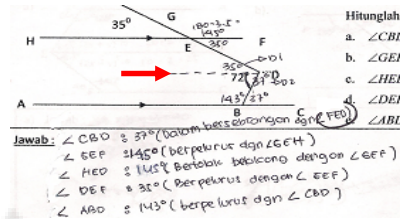 35° G 180-35°
145°
H E 35° F
35° D1
72° D2
37°
143° 37°
A B C
Hitunglah
a. ∠CBD
b. ∠GEF
c. ∠HED
d. ∠DEF
∠ABD
Jawab: ∠CBD : 37° (Dalam berseberangan dgn ∠FED)
∠GEF : 145° (berpelurus dgn ∠GEH)
∠HED = 145° (Bertolak belakang dengan ∠GEF)
∠DEF : 35° (Berpelurus dengan ∠GEF)
∠ABD : 143° (berpelurus dgn ∠CBD)